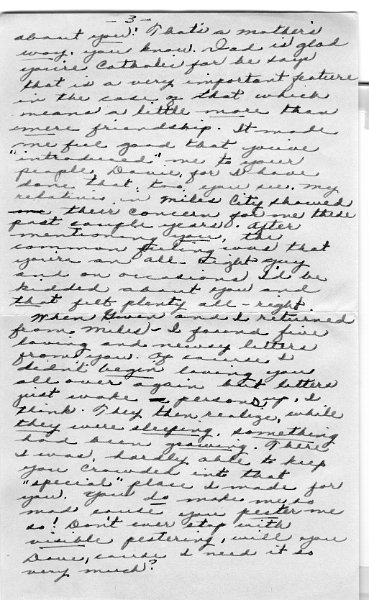 - 3 -
about you! That's a mother's
way, you know. Dad is glad
you're Catholic for he says
that is a very important feature
in the case of that which
means a little more than
mere friendship. It made
me feel good that you've
"introduced" me to your
people, Dave, for I have
done that, too, you see. My
relatives in Miles City showed
me, their concern for me these
past couple years. After
mentioning you, the
common feeling was that
you're an all-right guy
and on occasions I'd be
kidded about you and
that felt plenty all-right.
When Gwen and I returned
from Miles - I found five
loving and newsy letters
from you. Of course I
didn't begin loving you
all over again but letters
just wake a person up, I
think. They then realize, while
they were sleeping, something
had been growing. There
I was, hardly able to keep
you crowded into that
"special" place I made for
you. You do make me so
mad cause you pester me
so! Don't ever stop with
visible pestering, will you
Dave, cause I need it so
very much?